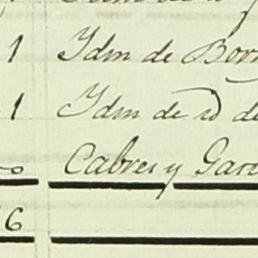 1 Idm de Bor
1 Idm de id de
Cabrer y Gar
6